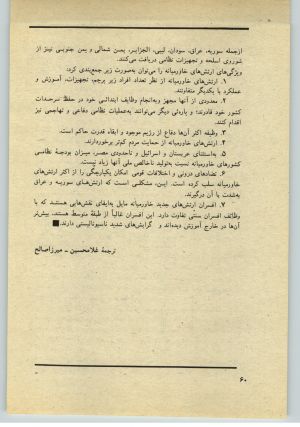 ازجمله سوریه، عراق، سودان، لیبی، الجزایر، یمن شمالی و یمن جنوبی نیز از
شوروی اسلحه و تجهیزات نظامی دریافت می‌کنند.
ویژگی‌های ارتش‌های خاورمیانه را می‌توان به‌صورت زیر جمع‌بندی کرد:
۱. ارتش‌های خاورمیانه از نظر تعداد افراد زیر پرچم، تجهیزات، آموزش و
عملکرد با یکدیگر متفاوتند.
۲. معدودی از آنها مجهز و به‌انجام وظایف ابتدائی خود در حفظ سرحدات
کشور خود قادرند؛ و پاره‌ئی دیگر می‌توانند به‌عملیات نظامی دفاعی و تهاجمی نیز
اقدام کنند.
۳. وظیفه اکثر آن‌ها دفاع از رژیم موجود و ابقاء قدرت حاکم است.
۴. ارتش‌های خاورمیانه از حمایت مردم کم‌تر برخوردارند.
۵. به‌استثنای عربستان و اسرائیل و تاحدودی مصر، میزان بودجهٔ نظامی
کشورهای خاورمیانه نسبت به‌تولید ناخالص ملی آنها زیاد نیست.
۶. تضادهای درونی و اختلافات قومی امکان یکپارچگی را از اکثر ارتش‌های
خاورمیانه سلب کرده است. این، مشکلی است که ارتش‌های سوریه و عراق
به‌شدت با آن درگیرند.
۷. افسران ارتش‌های جدید خاورمیانه مایل به‌ایفای نقش‌هایی هستند که با
وظائف افسران سنتی تفاوت دارد. این افسران غالباً از طبقهٔ متوسط هستند. بیش‌تر
آن‌ها در خارج آموزش دیده‌اند و گرایش‌های شدید ناسیونالیستی دارند.
ترجمهٔ غلامحسین ـ میرزاصالح
۶۰